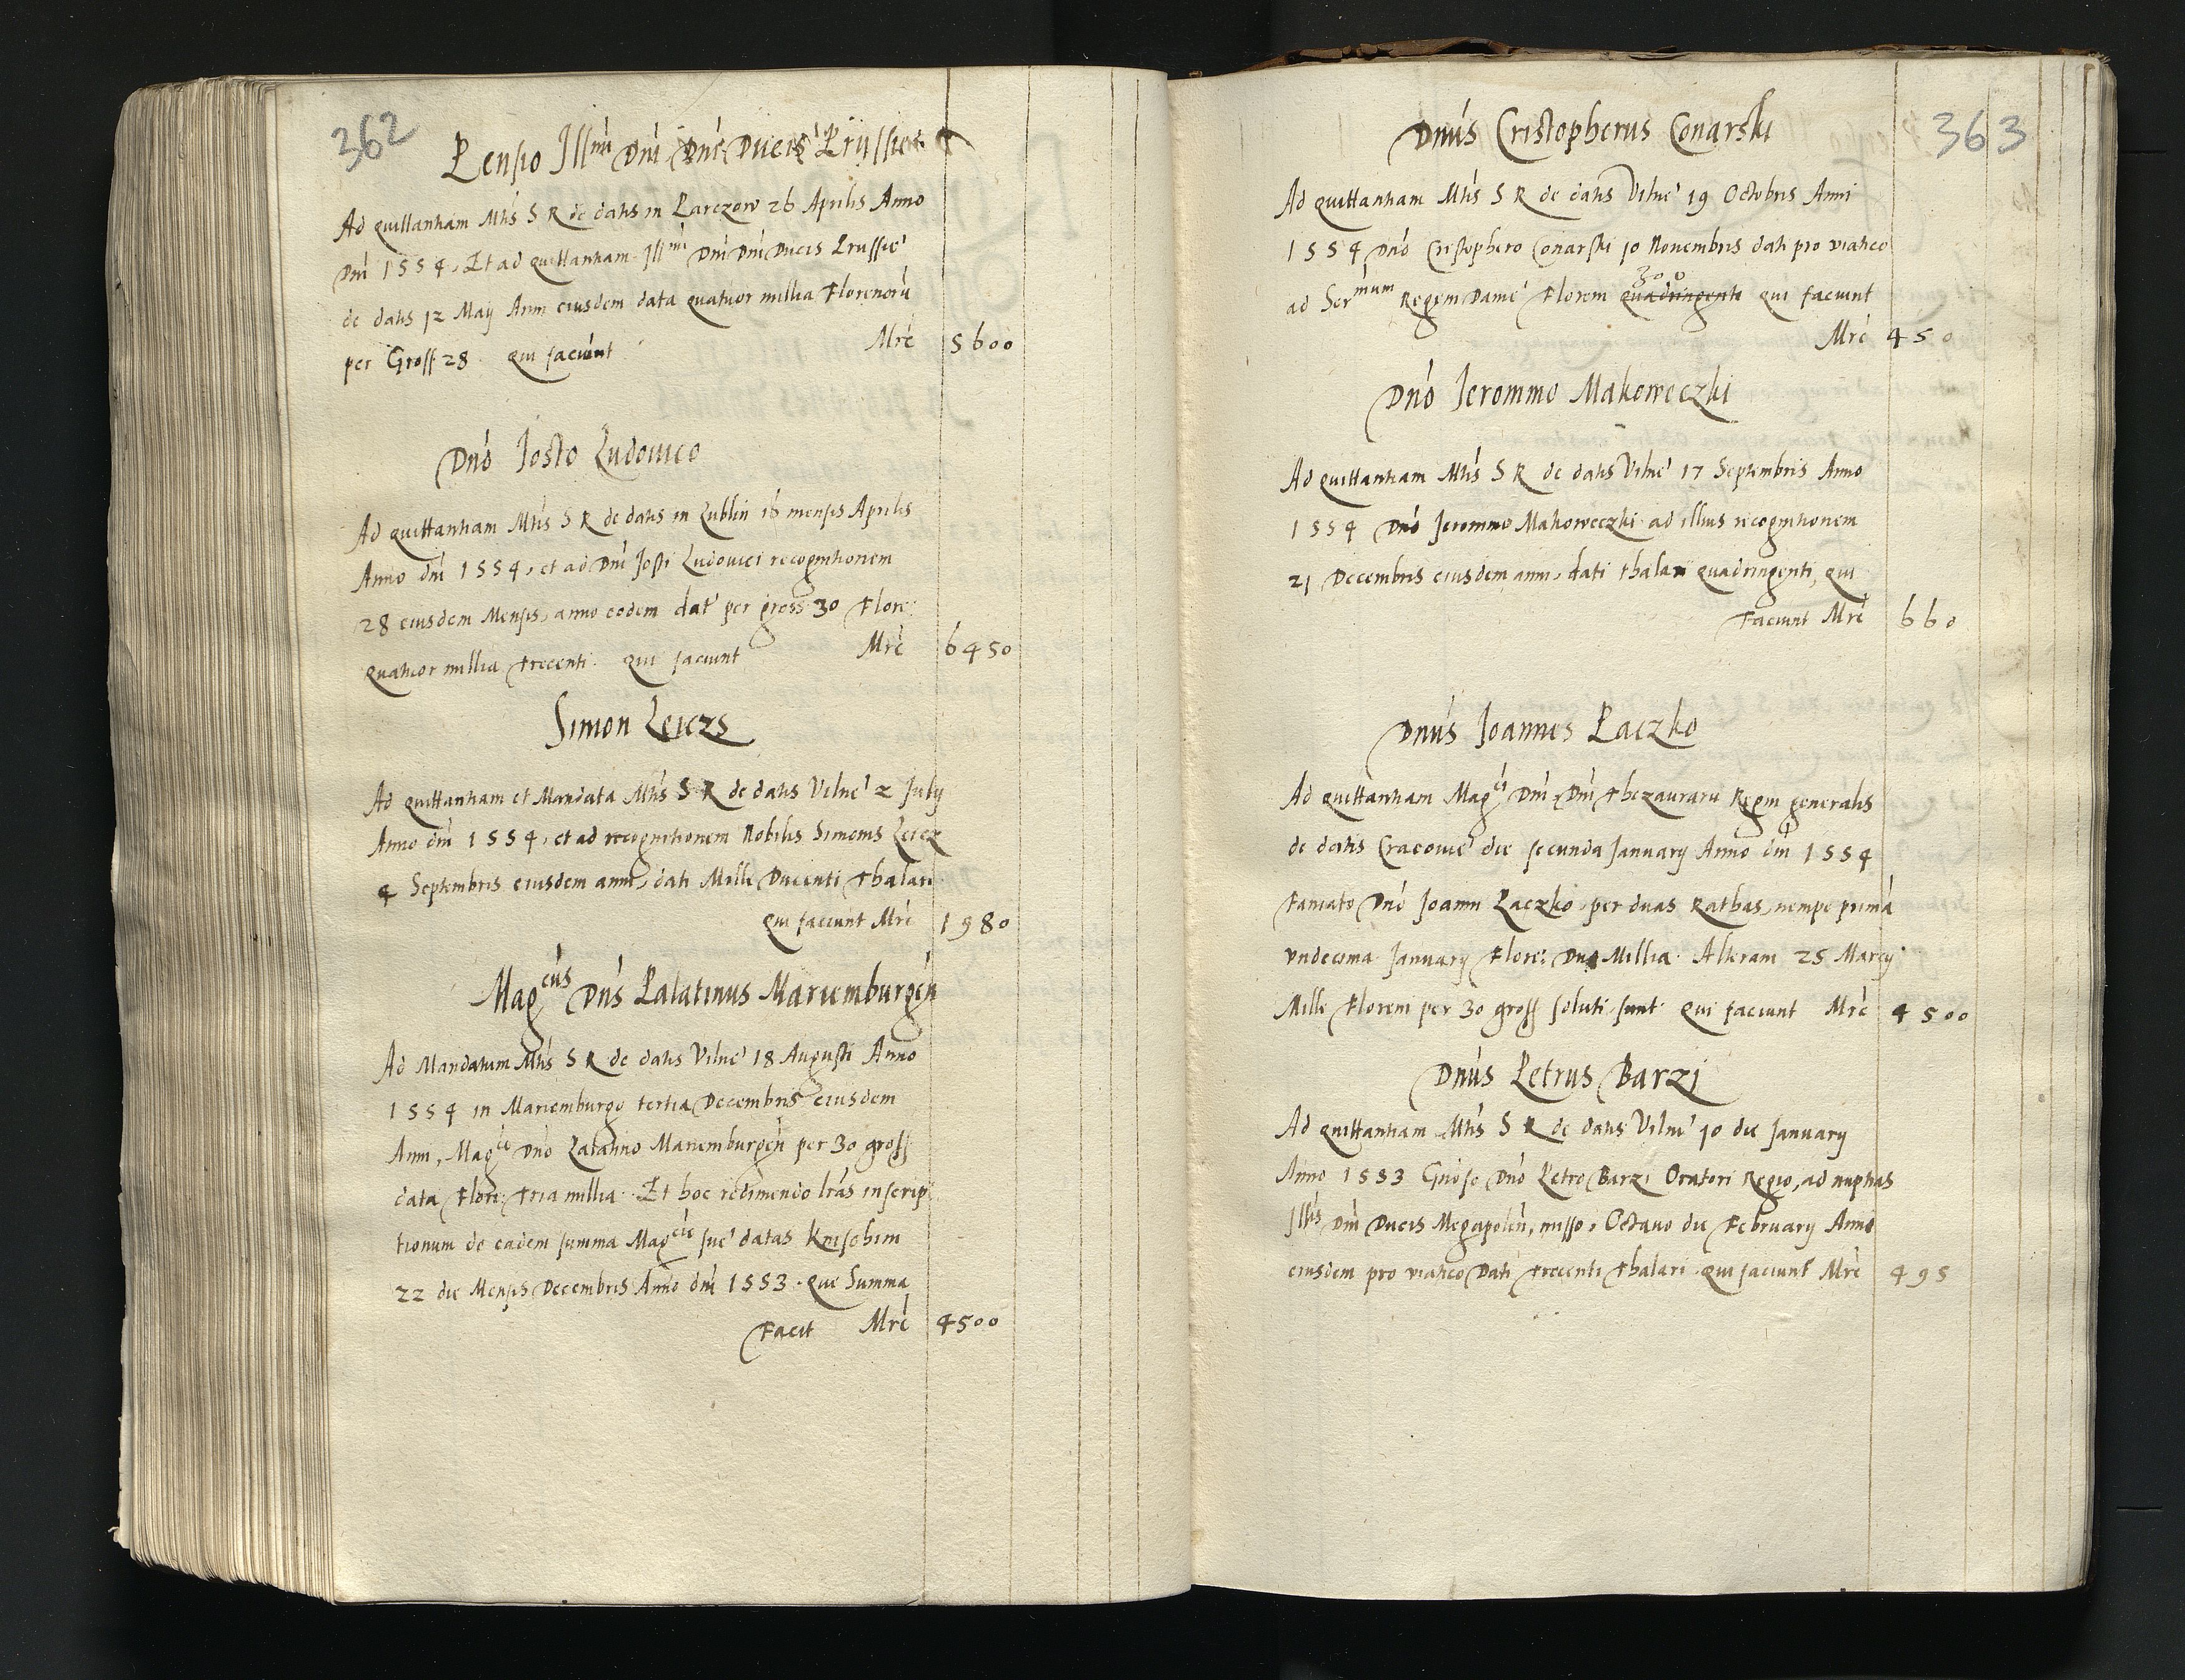 362
Pensio Ill<sup>mi</sup> Dni Dni Ducis Prussiae
Ad quittantiam Mtis S R de datis in Parczow 26 Aprilis Anno
Dni 1554, Et ad quittantiam Ill<sup>mi</sup> Dni Dni Ducis Prussie
de datis 12 Maij Anni eiusdem data quatuor millia Florenorū
per Gross 28 qui faciunt Mrc 5600
Dno Josto Ludovico
Ad quittantiam Mtis S R de datis in Lublin 16 mensis Aprilis
Anno dni 1554, et ad Dni Josti Ludovici recognitionem
28 eiusdem Mensis, anno eodem dat per gross 30 Flore:
quatuor millia trecenti qui faciunt Mrc 6450
Simon Leiczs
Ad quittantiam et Mandata Mtis S R de datis Vilne 2 Julij
Anno dni 1554, et ad recognitionem Nobilis Simonis Leicz
4 Septembris eiusdem anni, dati Mille Ducenti Thalari
qui faciunt Mrc 1980
Mag<sup>cus</sup> Dns Palatinus Mariemburgen
Ad Mandatum Mtis S R de datis Vilne 18 Augusti Anno
1554 in Mariemburgo tertia Decembris eiusdem
Anni, Mag<sup>co</sup> Dno Palatino Mariemburgen per 30 gross
data Flore: tria millia. Et hoc redimendo lras inscrip
tionum de eadem summa Mag<sup>cie</sup> sue datas Knischim
22 die Mensis Decembris Anno dni 1553. que Summa
Facit Mrc 4500
363
Dnus Cristopherus Conarski
Ad quittantiam Mtis S R de datis Vilne 19 Octobris Anni
1554 Dno Cristophero Conarski 10 Novembris dati pro viatico
300
ad Ser<sup>mum</sup> Regem Danie Floreni quadringenti qui faciunt
Mrc 450
Dno Jeronimo Makoweczki
Ad quittantiam Mtis S R de datis Vilne 17 Septembris Anno
1554 Dno Jeronimo Makoweczki ad illius recognitionem
21 Decembris eiusdem anni, dati thalari quadringenti, qui
Faciunt Mrc 660
Dnus Joannes Placzko
Ad quittantiam Mag<sup>ci</sup> Dni Dni Thezaurarii Regni generalis
de datis Cracovie die secunda Januarij Anno dni 1554
Famato Dno Joanni Placzko per duas Rathas, nempe primā
undecima Januarij Flore: Duo Millia. Alteram 25 Marcij
Mille Floreni per 30 gross soluti sunt qui faciunt Mrc 4500
Dnus Petrus Barzi
Ad quittantiam Mtis S R de datis Vilne 10 die Januarij
Anno 1553 Gnoso Dno Petro Barzi Oratori Regio, ad nuptias
Illtis Dni Ducis Megapolen, misso, Octavo die Februarij Anno
eiusdem pro viatico Dati trecenti Thalari qui faciunt Mrc 495